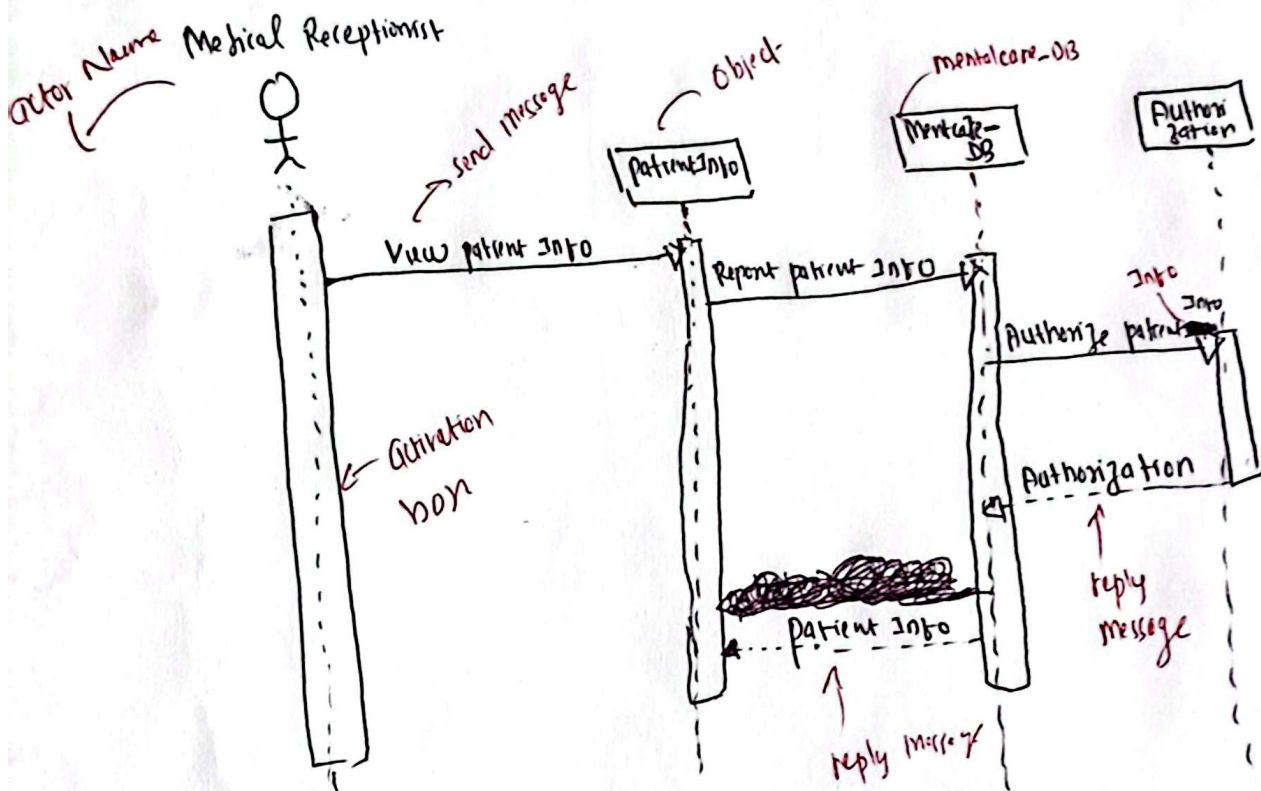 actor Name
Medical Receptionist
send message
Object
mentalcare_DB
PatientInfo
Mentcare-
DB
Authori
zation
View patient Info
Report patient Info
Info
Info
Authorize patient
activation
box
Authorization
reply
message
patient Info
reply message